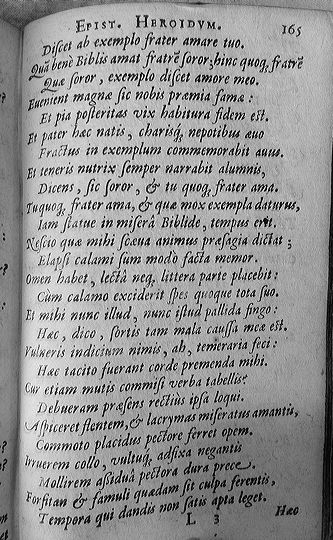 EPIST. HEROIDVM. 165
Discet ab exemplo frater amare tuo.
Quã benè Biblis amat fratrẽ soror; hinc quoq, fratrẽ
Quæ soror, exemplo discet amore meo.
Evenient magnæ sic nobis præmia famæ:
Et pia posteritas vix habitura fidem est.
Et pater hæc natis, charisq, nepotibus ævo
Fractus in exemplum commemorabit avus.
Et teneris nutrix semper narrabit alumnis,
Dicens, sic soror, & tu quoq, frater ama.
Tu quoq, frater ama, & quæ mox exempla daturus,
Iam statue in miserâ Biblide, tempus erit.
Nescio quæ mihi scæva animus præsagia dictat;
Elapsi calami sum modo facta memor.
Omen habet, lectâ neq, littera parte placebit:
Cùm calamo exciderit spes quoque tota suo.
Et mihi nunc illud, nunc istud pallida fingo:
Hæc, dico, sortis tam mala caussa meæ est.
Vulneris indicium nimis, ah, temeraria feci:
Hæc tacito fuerant corde premenda mihi.
Cur etiam mutis commisi verba tabellis?
Debueram præsens rectiùs ipsa loqui.
Aspiceret flentem, & lacrymas miseratus amantis,
Commoto placidus pectore ferret opem.
Irruerem collo, vultuq, adfixa negantis
Mollirem assiduâ pectora dura prece.
Forsitan & famuli quædam sit culpa ferentis,
Tempora qui dandis non satis apta leget.
L 3 Hæo